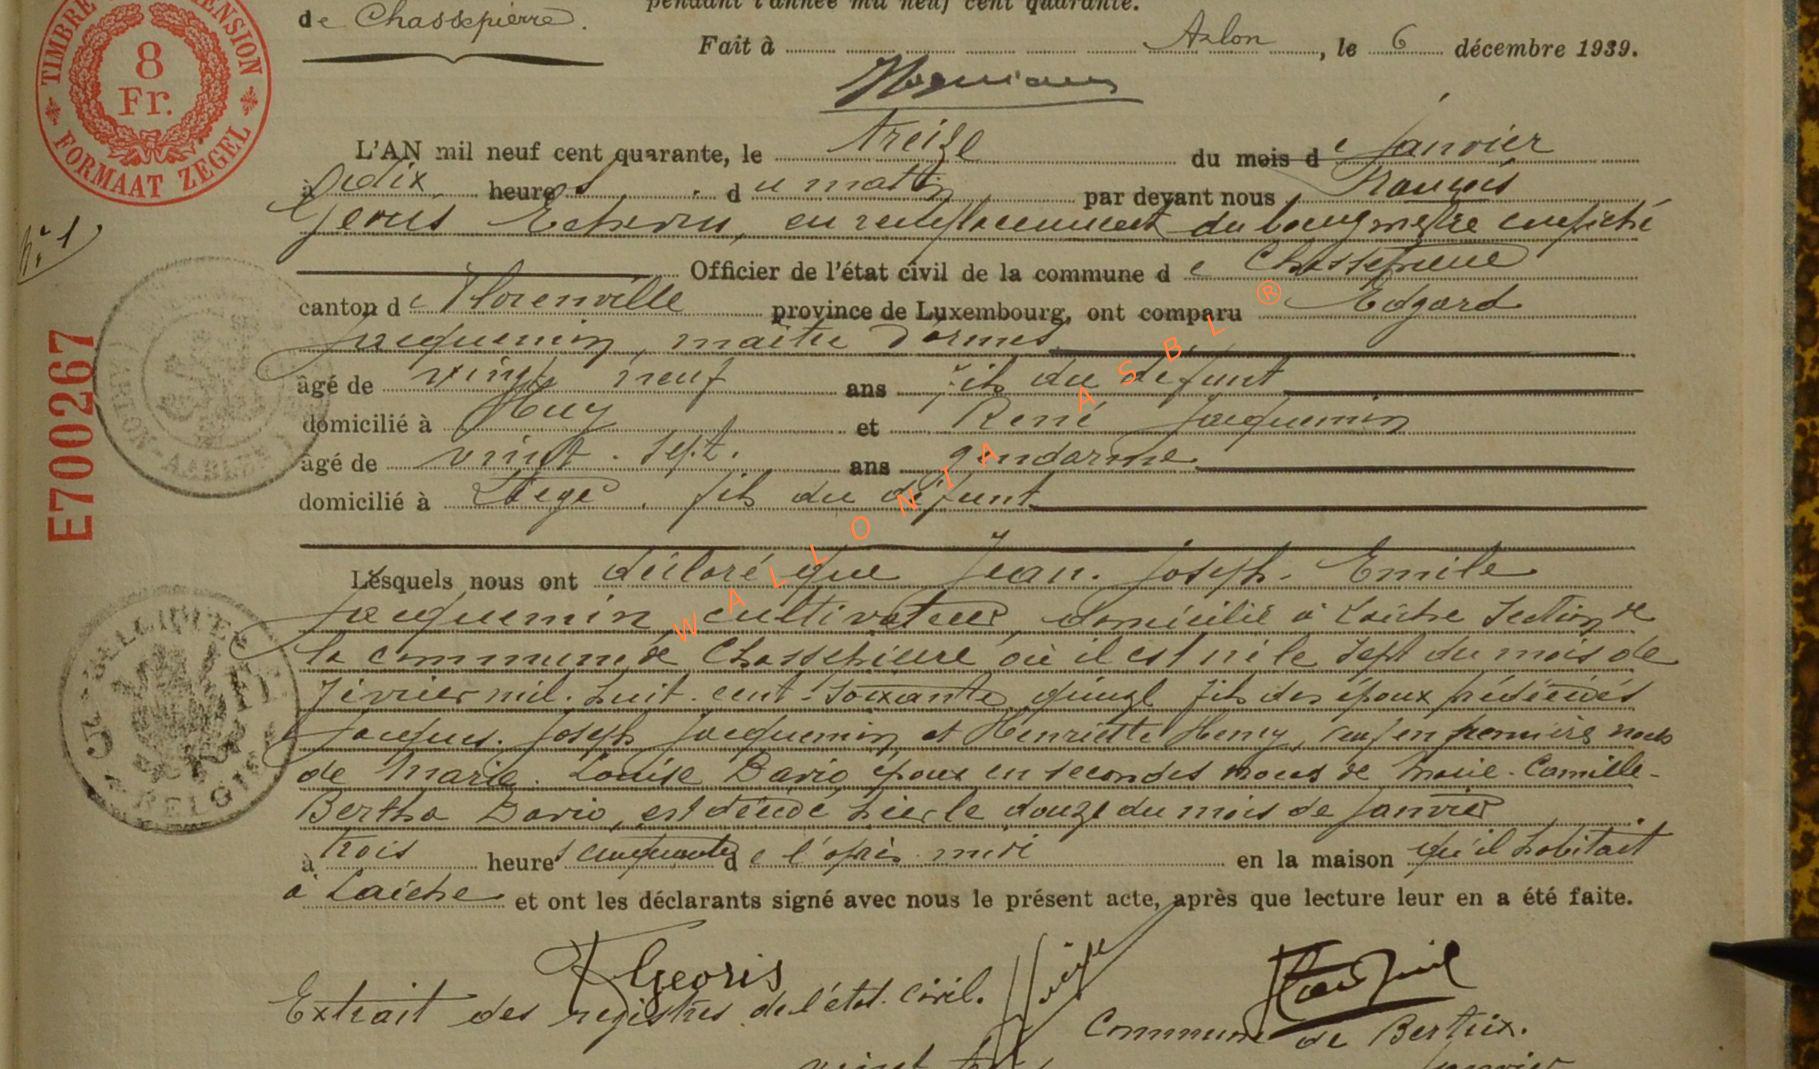 de Chassepierre.
pendant l'année mil neuf cent quarante.
Fait à Arlon, le 6 décembre 1939.
TIMBRE DIMENSION
8
Fr.
FORMAAT ZEGEL
L'AN mil neuf cent quarante, le treize du mois de janvier
à dix heures du matin par devant nous François
Georis Echevin, en remplacement du bourgmestre empêché
N° 1
Officier de l'état civil de la commune de Chassepierre
canton de Florenville province de Luxembourg, ont comparu Edgard
Jacquemin, maître d'armes
âgé de vingt neuf ans fils du défunt
domicilié à Huy et René Jacquemin
âgé de vingt-sept. ans gendarme
domicilié à Liège, fils du défunt
E700267
WALLONIA ASBL ®
ARLON-AARLEN
Lesquels nous ont déclaré que Jean-Joseph-Emile
Jacquemin cultivateur domicilié à Laiche section de
la commune de Chassepierre où il est né le sept du mois de
février mil-huit-cent-soixante quinze fils des époux prédécédés
Jacques-Joseph Jacquemin et Henriette Henry, veuf en premières noces
de Marie-Louise Dario, époux en secondes noces de Marie-Camille-
Bertha Dario, est décédé hier le douze du mois de janvier
à trois heures cinquante de l'après-midi en la maison qu'il habitait
à Laiche et ont les déclarants signé avec nous le présent acte, après que lecture leur en a été faite.
BELGIQUE
BELGIE
F Georis
Extrait des registres de l'état-civil.
Commune de Bertrix.
janvier